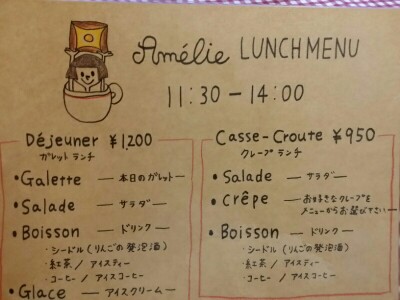 Amélie LUNCH MENU
11:30 - 14:00
Déjeuner ¥1,200
ガレット ランチ
• Galette — 本日のガレット —
• Salade — サラダ —
• Boisson — ドリンク —
・シードル (りんごの発泡酒)
・紅茶 / アイスティー
・コーヒー / アイスコーヒー
• Glace — アイスクリーム —
Casse-Croute ¥950
クレープ ランチ
• Salade — サラダ —
• crêpe — お好きなクレープを
メニューからお選び下さい —
• Boisson — ドリンク —
・シードル (りんごの発泡酒)
・紅茶 / アイスティー
・コーヒー / アイスコーヒー